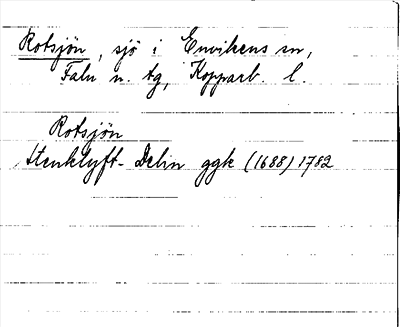 Rotsjön, sjö i Envikens sn,
Falu n. tg, Kopparb. l.
Rotsjön
Stenklyft-Delin ggk (1688) 1782